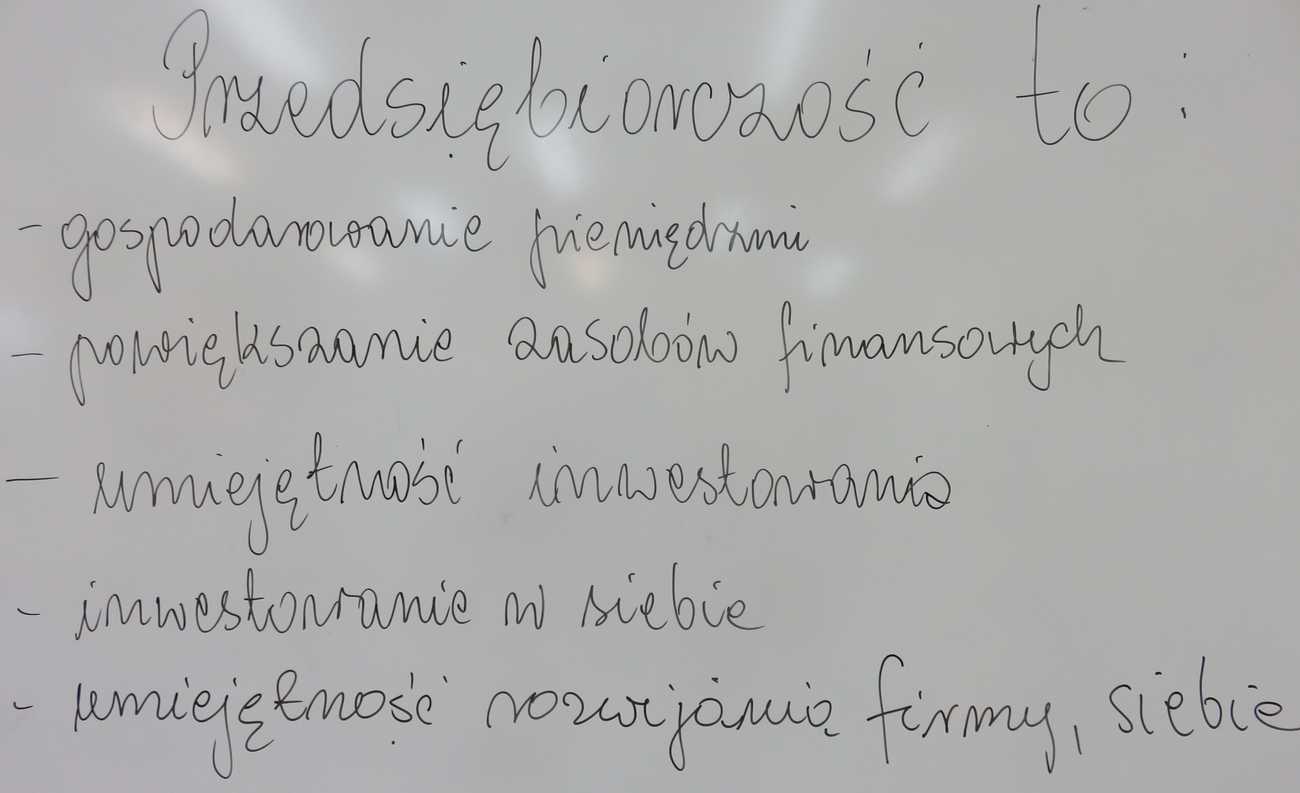 Przedsiębiorczość to:
- gospodarowanie pieniędzmi
- powiększanie zasobów finansowych
- umiejętność inwestowania
- inwestowanie w siebie
- umiejętność rozwijania firmy, siebie